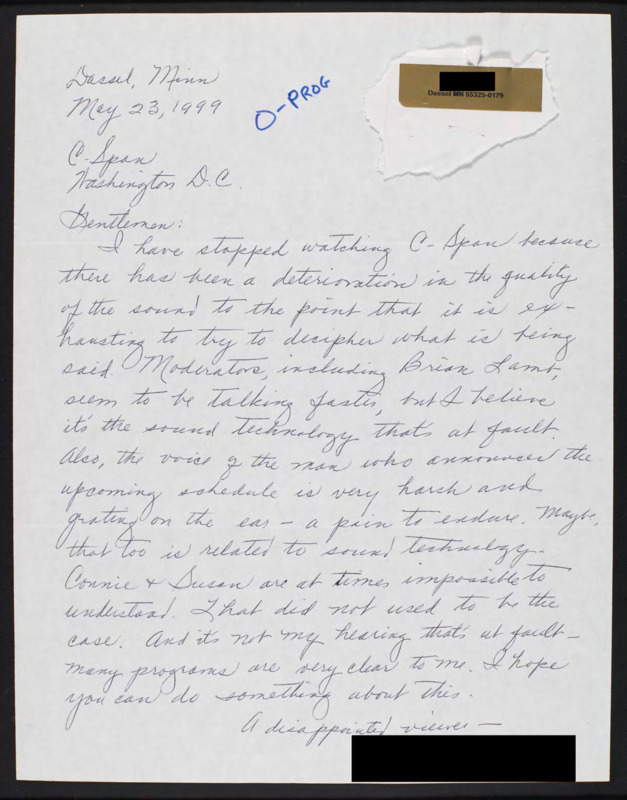 Dassel, Minn
May 23, 1999
O-PROG
Dassel MN 55325-0179
C-Span
Washington D.C.
Gentlemen:
I have stopped watching C-Span because
there has been a deterioration in the quality
of the sound to the point that it is ex-
hausting to try to decipher what is being
said. Moderators, including Brian Lamb,
seem to be talking faster, but I believe
it's the sound technology that's at fault.
Also, the voice of the man who announces the
upcoming schedule is very harsh and
grating on the ear - a pain to endure. Maybe,
that too is related to sound technology.
Connie & Susan are at times impossible to
understand. That did not used to be the
case. And it's not my hearing that's at fault -
many programs are very clear to me. I hope
you can do something about this.
A disappointed viewer -